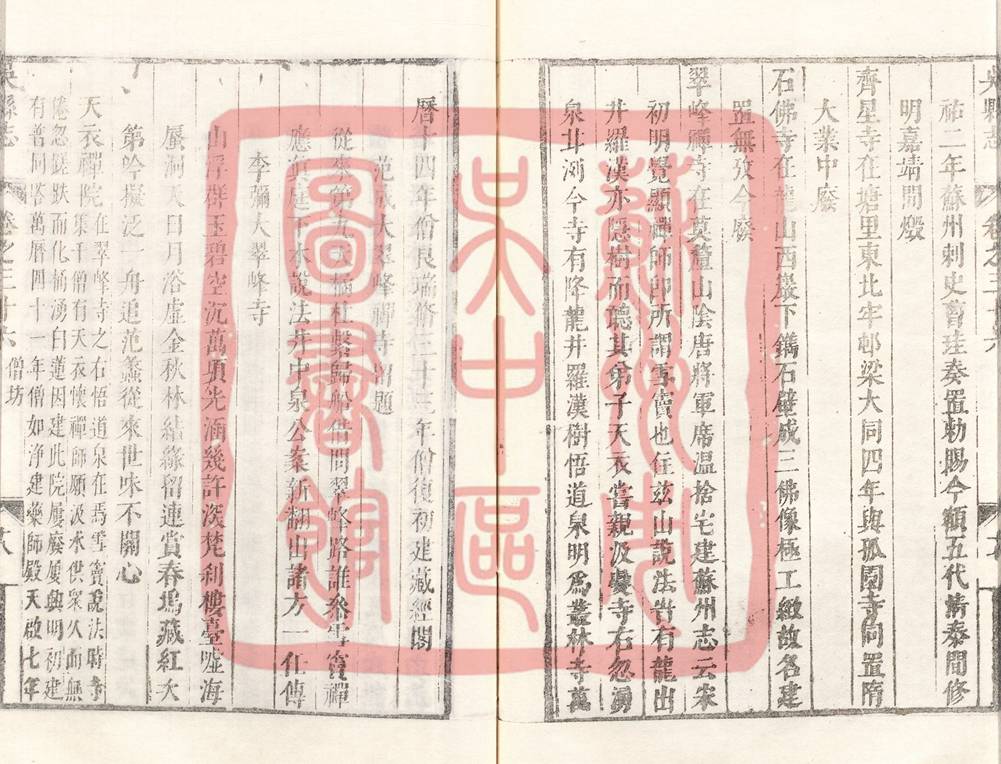 吳縣志 卷之三十六
祐二年蘇州刺史曹珪奏置勅賜今額五代情泰間修
明嘉靖間燬
齊星寺在塘里東北牢邨梁大同四年與孤園寺同置隋
大業中廢
石佛寺在龍山西巖下鐫石壁成三佛像極工緻故名建
置無攷今廢
翠峰禪寺在莫釐山陰唐將軍席溫捨宅建蘇州志云宋
初明覺顯禪師即所謂雪竇也住兹山說法時有龍出
井羅漢亦隱樹而聽其弟子天衣嘗親汲憂寺右忽湧
泉井洌今寺有降龍井羅漢樹悟道泉明爲叢林寺萬
曆十四年僧良端脩三十三年僧復初建藏經閣
范成大翠峰禪寺留題
從來第九天橘社繫歸船借問翠峰路誰參雪竇禪
應真庭下木說法井中泉公案新翻出諸方一任傳
李彌大翠峰寺
山浮群玉碧空沉萬頃光涵幾許深梵刹樓臺噓海
蜃洞天日月浴虛金秋林結綠留連賞春塢藏紅次
第吟擬泛一舟追范蠡從來世味不關心
天衣禪院在翠峰寺之右悟道泉在焉雪竇說法時寺
集千僧有天衣懷禪師願汲水供衆久而無
倦忽蹉跌而化桶湧白蓮因建此院屢廢屢興明初建
有普同塔萬曆四十一年僧如淨建藥師殿天啟七年
吳縣志 卷之三十六 僧坊 十八
蘇州市吳中區圖書館